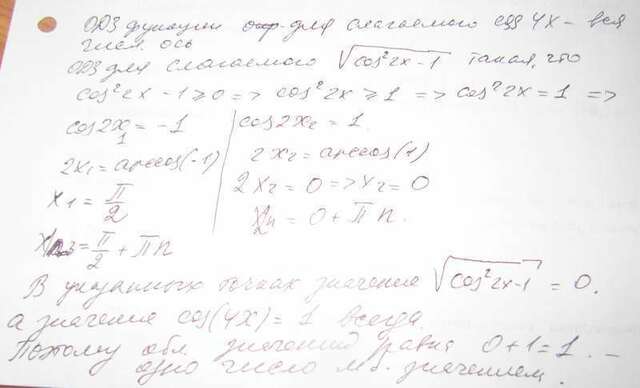 ОДЗ функции для слагаемого cos 4x - вся
числ. ось
ОДЗ для слагаемого √(cos²2x-1) такая, что
cos²2x - 1 ≥ 0 => cos²2x ≥ 1 => cos²2x = 1 =>
cos2x₁ = -1
2x₁ = arccos(-1)
x₁ = π/2
= π/2 + πn
cos2x₂ = 1
2x₂ = arccos(1)
2x₂ = 0 => x₂ = 0
= 0 + πn.
В указанных точках значение √(cos²2x-1) = 0,
а значение cos(4x) = 1 всегда.
Поэтому обл. значений равна 0+1=1. -
одно число мб. значением.